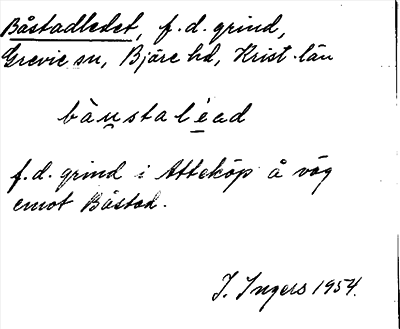 Båstadledet, f.d. grind,
Grevie sn, Bjäre hd, Krist. län
bàu̠stalé̠ad
f.d. grind i Atteköp å väg
emot Båstad.
I. Ingers 1954.